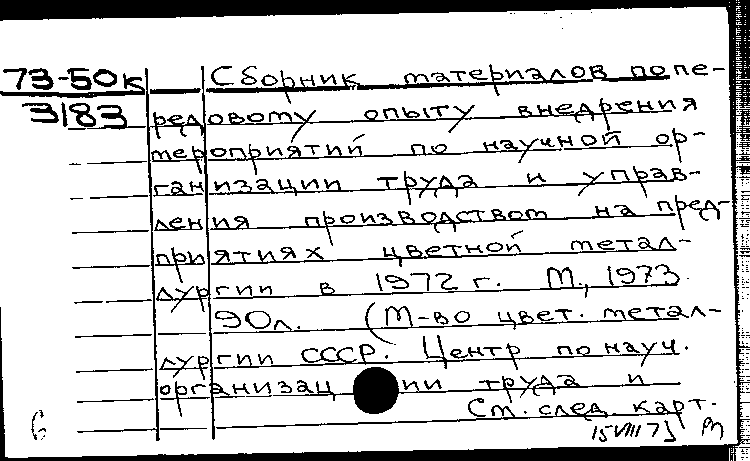 73-50к Сборник материалов попе-
3183 редовому опыту внедрения
мероприятий по научной ор-
ганизации труда и управ-
ления производством на пред-
приятиях цветной метал-
лургии в 1972 г. М., 1973.
90л. (М-во цвет. метал-
лургии СССР. Центр по науч.
организации труда и
См. след. карт.
6 15 VIII 73